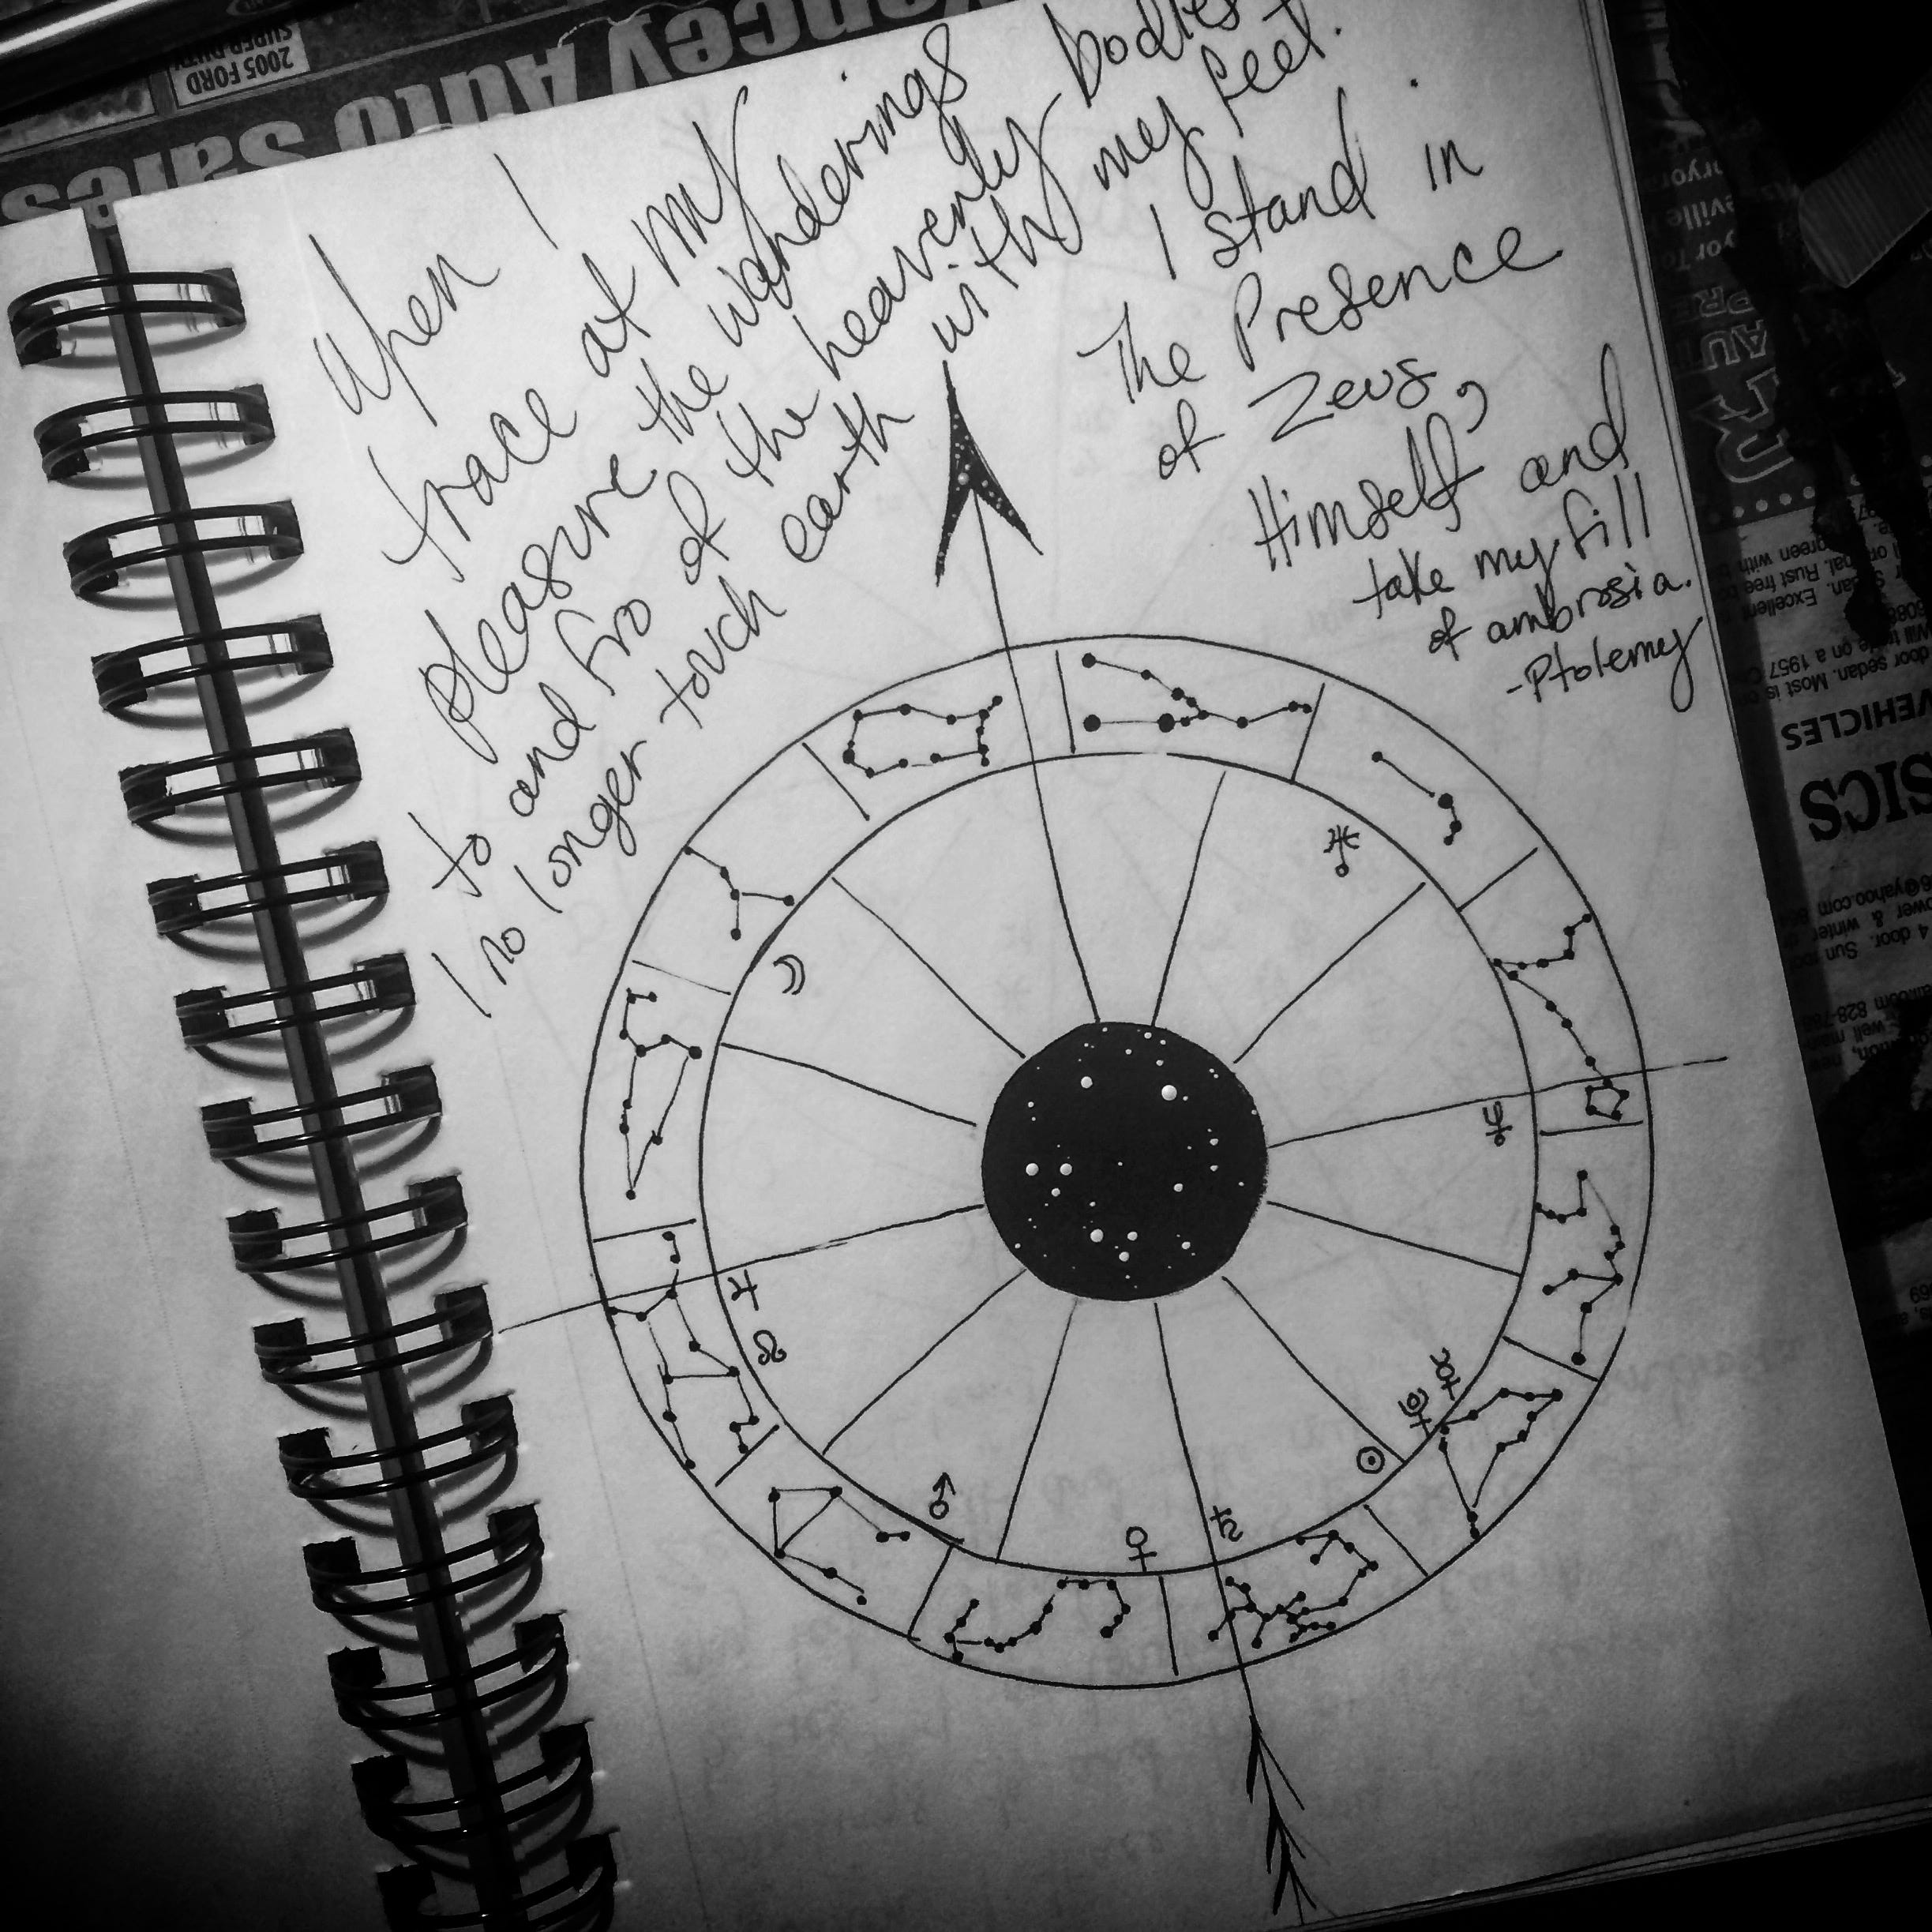 When I
trace at my
pleasure the wanderings
to and fro of the heavenly bodies
I no longer touch earth with my feet.
I stand in
The Presence
of Zeus,
Himself, and
take my fill
of ambrosia.
-Ptolemy
2005 FORD
SUPER DUTY
ancey Auto Sales
VEHICLES
SICS
door sedan. Most is
on a 1957
Rust free
Excellent
green with
4 door. Sun
@yahoo.com